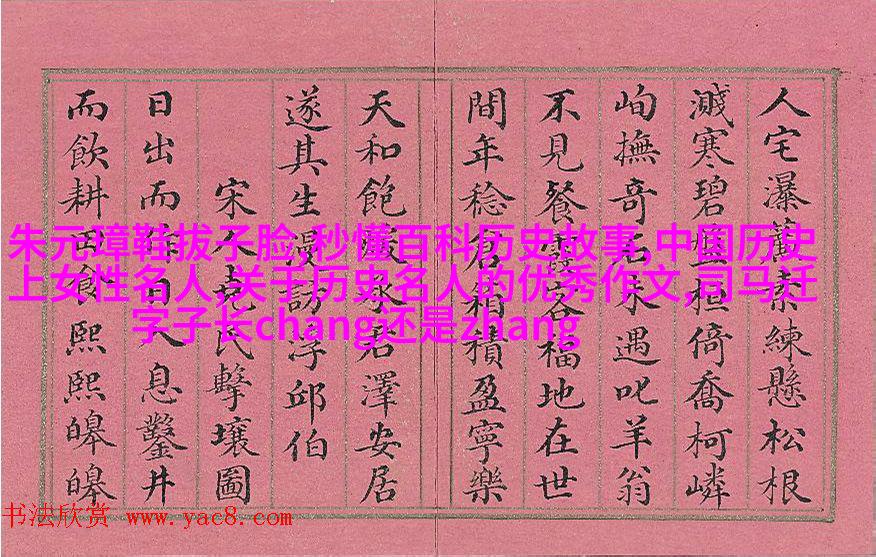 人宅瀑簾素練懸松根
濺寒碧盤桓倚喬柯嶙
峋撫奇石未遇叱羊翁
不見餐霞客福地在世
間年稔倉箱積盈寧樂
天和飽暖承君澤安居
遂其生漫訪浮邱伯
宋人堯民擊壤圖
日出而作日入息鑿井
而飲耕田食熙熙皞皞
朱元璋鞋拔子脸,秒懂百科历史故事,中国历史
上女性名人,关于历史名人的优秀作文,司马迁
字子长chang还是zhang
书法欣赏 www.yac8.com